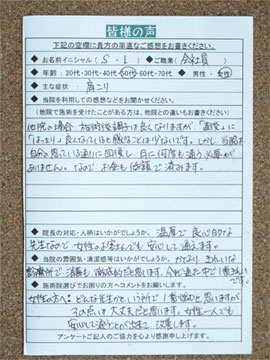 皆様の声
下記の空欄に貴方の率直なご感想をお書きください。
◆お名前イニシャル（ S・I ）◆ご職業（会社員）
◆年齢：20代・30代・40代・50代・60代・70代 ◆男性・女性
◆主な症状： 肩こり
◆当院を利用しての感想などをお聞かせください。
（他院で施術を受けたことがある方は、他院との違いもお書きください）
他院の場合、施術後調子は良くなりますが、"直後"に
"はっきり"良くなっていると感じることは少ないです。しかし、当院は
自分の思っている通りに回復し、月に何度も通う必要が
ありません。なので、お金も低額で済みます。
◆院長の対応・人柄はいかがでしょうか。 温厚で良心的な
先生なので女性のお客さんでも安心して通えます。
◆当院の雰囲気・清潔感等はいかがでしょうか。 かなりきれいな
◆施術院選びでお困りの方へコメントをお願いします。
女性の方へ：どんな先生かという所で1番悩むと思いますが
その点は大丈夫だと思います。女性一人でも
安心して通うことが出来て、改善します。
アンケートご記入のご協力を心より感謝し申し上げます。